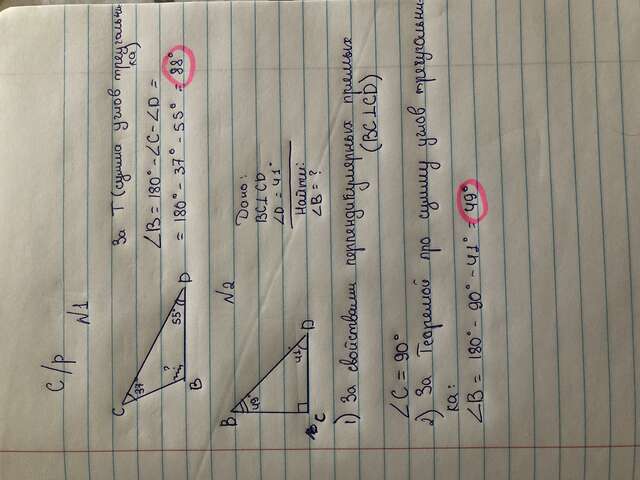 С/р
№1
C
37°
?
B
55°
D
За Т (сумма углов треугольни
ка)
∠B = 180° - ∠C - ∠D =
= 180° - 37° - 55° = 88°
№2
B
49°
41°
D
C
Дано:
BC⊥CD
∠D = 41°
Найти:
∠B = ?
1) За свойствами перпендикулярных прямых
(BC⊥CD)
∠C = 90°
2) За Теоремой про сумму углов треугольни
ка:
∠B = 180° - 90° - 41° = 49°